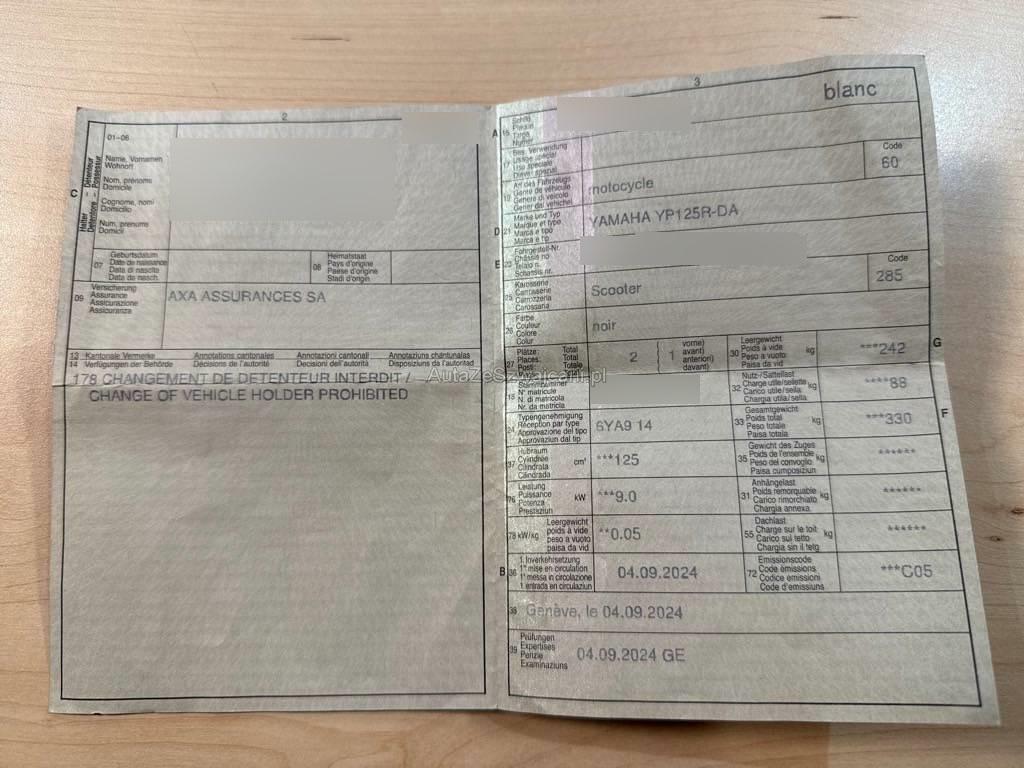 2
01-06
Halter - Détenteur
Detentore - Possessur
C
Name, Vornamen
Wohnort
Nom, prénoms
Domicile
Cognome, nomi
Domicilio
Num, prenums
Domicil
07
Geburtsdatum
Date de naissance
Data di nascita
Data da nasch.
08
Heimatstaat
Pays d'origine
Paese d'origine
Stadi d'origin
09
Versicherung
Assurance
Assicurazione
Assicuranza
AXA ASSURANCES SA
13 Kantonale Vermerke Annotations cantonales Annotazioni cantonali Annotaziuns chantunalas
14 Verfügungen der Behörde Décisions de l'autorité Decisioni dell'autorità Disposiziuns da l'autoritad
178 CHANGEMENT DE DETENTEUR INTERDIT /
CHANGE OF VEHICLE HOLDER PROHIBITED
AutazeSzwajcarii.pl
3
blanc
A
15
Schild
Plaque
Targa
Numer
17
Bes. Verwendung
Usage spécial
Uso speciale
Diever spezial
Code
60
19
Art des Fahrzeugs
Genre de véhicule
Genere di veicolo
Gener dal vehichel
motocycle
D
21
Marke und Typ
Marque et type
Marca e tipo
Marca e tip
YAMAHA YP125R-DA
E
23
Fahrgestell-Nr.
Châssis no
Telaio n.
Schassis nr.
25
Karosserie
Carrosserie
Carrozzeria
Carossaria
Scooter
Code
285
26
Farbe
Couleur
Colore
Colur
noir
27
Plätze: Total
Places: Total
Posti: Totale
2
{ 1
vorne)
avant)
anteriori)
davant)
30
Leergewicht
Poids à vide
Peso a vuoto
Paisa da vid
kg
***242
G
18
Stammnummer
N° matricule
N. di matricola
Nr. da matricla
32
Nutz-/Sattellast
Charge utile/sellette
Carico utile/sella
Chargia utila/
kg
****88
24
Typengenehmigung
Réception par type
Approvazione del tipo
Approvaziun dal tip
6YA9 14
33
Gesamtgewicht
Poids total
Peso totale
Paisa totala
kg
***330
F
37
Hubraum
Cylindrée
Cilindrata
Cilindrada
cm³
***125
35
Gewicht des Zuges
Poids de l'ensemble
Peso del convoglio
Paisa cumposiziun
kg
******
76
Leistung
Puissance
Potenza
Prestaziun
kW
***9.0
31
Anhängelast
Poids remorquable
Carico rimorchiato
Chargia annexa
kg
******
78 kW/kg
Leergewicht
poids à vide
peso a vuoto
paisa da vid
**0.05
55
Dachlast
Charge sur le toit
Carico sul tetto
Chargia sin il tetg
kg
******
B
36
1. Inverkehrsetzung
1re mise en circulation
1a messa in circolazione
1. entrada en circulaziun
04.09.2024
72
Emissionscode
Code émissions
Codice emissioni
Code d'emissiuns
***C05
38
Genève, le 04.09.2024
39
Prüfungen
Expertises
Perizie
Examinaziuns
04.09.2024 GE